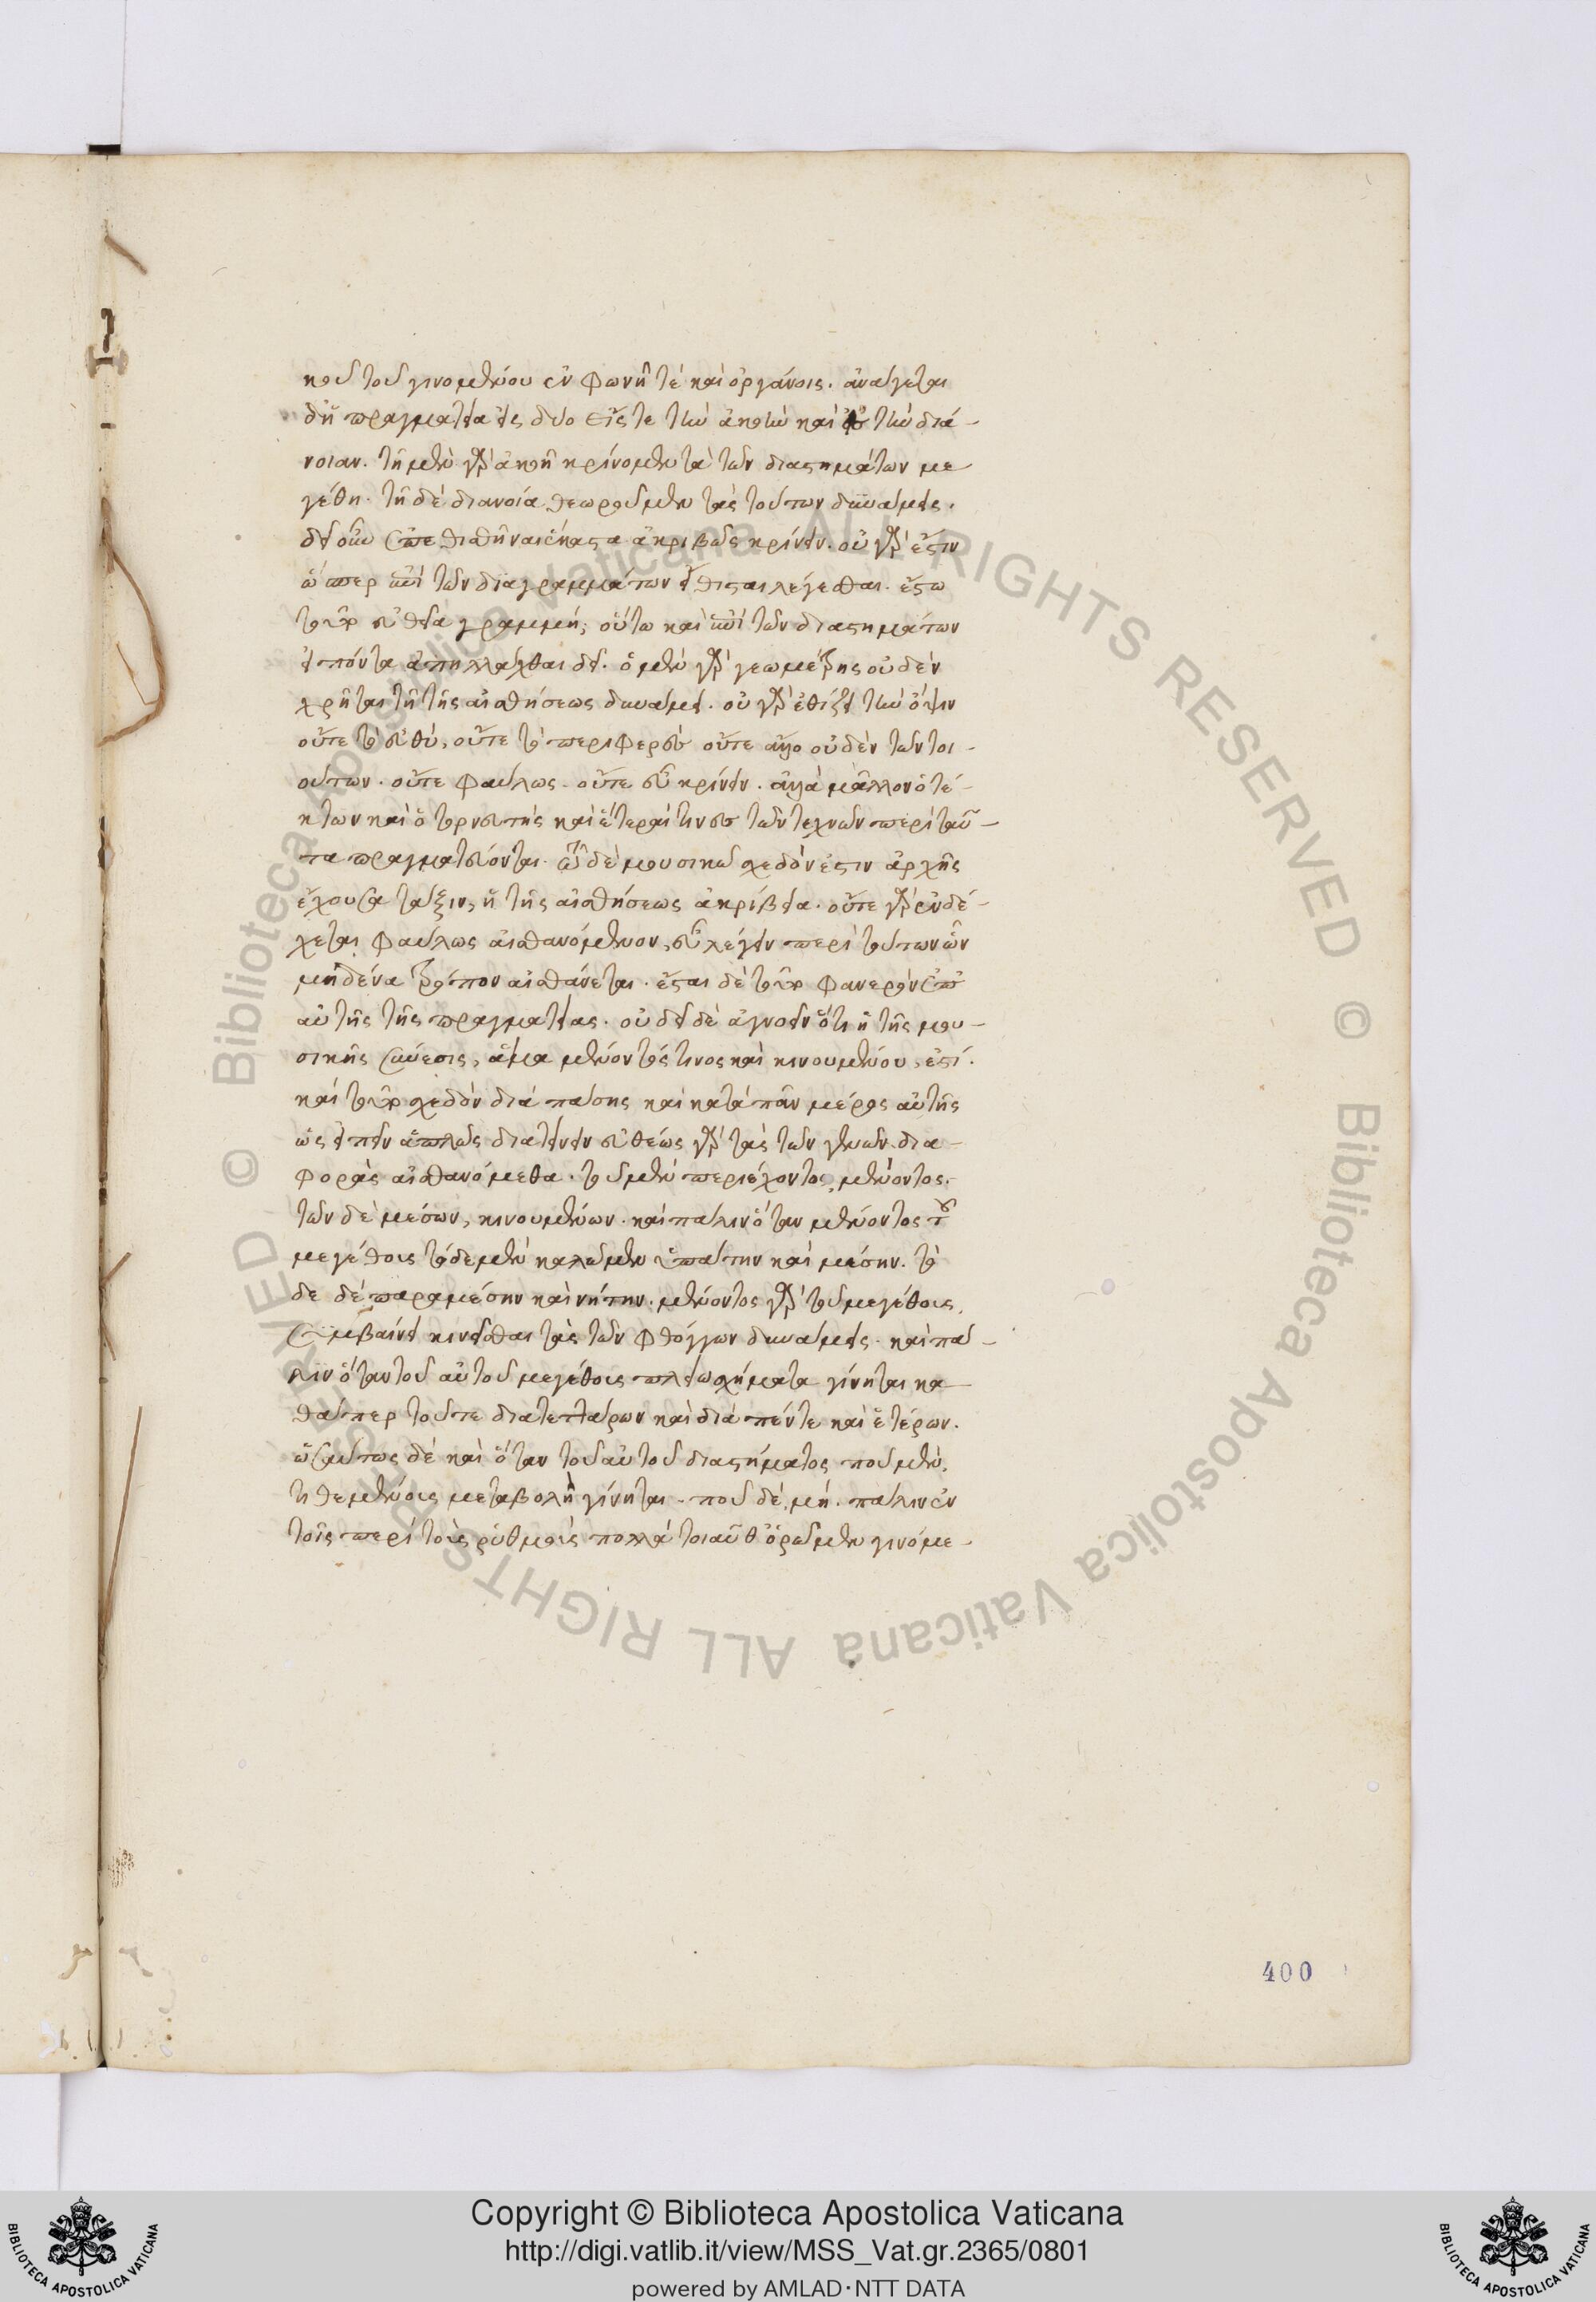 κοῦ τοῦ γινομένου ἐν φωνῆ τὲ καὶ ὀργάνοις. ἀνάγεται
δὴ πραγματεία εἰς δύο εἴς τε τὴν ἀκοὴν καὶ εἰς τὴν διά-
νοιαν. τῆ μὲν γὰρ ἀκοῆ κρίνομεν τὰ τῶν διαστημάτων με
γέθη. τῆ δὲ διανοία θεωροῦμεν τὰς τούτων δυνάμεις.
δεῖ οὖν ἐπεθισθῆναι ἕκαστα ἀκριβῶς κρίνειν. οὐ γάρ ἐστιν
ὥσπερ ἐπὶ τῶν διαγραμμάτων εἴθισται λέγεσθαι. ἔστω
τοῦτο εὐθεῖα γραμμή, οὕτω καὶ ἐπὶ τῶν διαστημάτων
εἰπόντα ἀπηλλάχθαι δεῖ. ὁ μὲν γὰρ γεωμέτρης οὐδὲν
χρῆται τῆ τῆς αἰσθήσεως δυνάμει. οὐ γὰρ ἐθίζει τὴν ὄψιν
οὔτε τὸ εὐθὺ, οὔτε τὸ περιφερὲς οὔτε ἄλλο οὐδὲν τῶν τοι-
ούτων. οὔτε φαύλως. οὔτε εὖ κρίνειν. ἀλλὰ μᾶλλον ὁ τέ-
κτων καὶ ὁ τορνευτὴς καὶ ἕτεραί τινες τῶν τεχνῶν περὶ ταῦ-
τα πραγματεύονται. τῶ δὲ μουσικῶ σχεδόν ἐστιν ἀρχῆς
ἔχουσα τάξιν, ἡ τῆς αἰσθήσεως ἀκρίβεια. οὔτε γὰρ ἐνδέ-
χεται φαύλως αἰσθανόμενον, εὖ λέγειν περὶ τούτων ὧν
μηδένα τρόπον αἰσθάνεται. ἔσται δὲ τοῦτο φανερὸν ἐπ
αὐτῆς τῆς πραγματείας. οὐ δεῖ δὲ ἀγνοεῖν ὅτι ἡ τῆς μου-
σικῆς σύνεσις, ἅμα μένοντός τινος καὶ κινουμένου, ἐστί.
καὶ τοῦτο σχεδὸν διὰ πάσης καὶ κατὰ πᾶν μέρος αὐτῆς
ὡς εἰπεῖν ἁπλῶς διατείνειν εὐθέως γὰρ τὰς τῶν γενῶν δια-
φορὰς αἰσθανόμεθα. τοῦ μὲν περιέχοντος, μένοντος.
τῶν δὲ μέσων, κινουμένων. καὶ πάλιν ὅταν μένοντος τοῦ
μεγέθους τόδε μὲν καλῶμεν ὑπάτην καὶ μέσην. τό
δε δὲ παραμέσην καὶ νήτην. μένοντος γὰρ τοῦ μεγέθους,
συμβαίνει κινεῖσθαι τὰς τῶν φθόγγων δυνάμεις. καὶ πά-
λιν ὅταν τοῦ αὐτοῦ μεγέθους πλείω σχήματα γίνηται κα-
θάπερ τοῦτε διατεττάρων καὶ διὰ πέντε καὶ ἑτέρων.
ὡσαύτως δὲ καὶ ὅταν τοῦ αὐτοῦ διαστήματος ποῦ μὲν,
τιθεμένους μεταβολὴ γίνηται. ποῦ δὲ, μή. πάλιν ἐν
τοῖς περὶ τοὺς ῥυθμοὺς πολλὰ τοιαῦθ ὁρῶμεν γινόμε-
400
Copyright © Biblioteca Apostolica Vaticana
http://digi.vatlib.it/view/MSS_Vat.gr.2365/0801
powered by AMLAD·NTT DATA